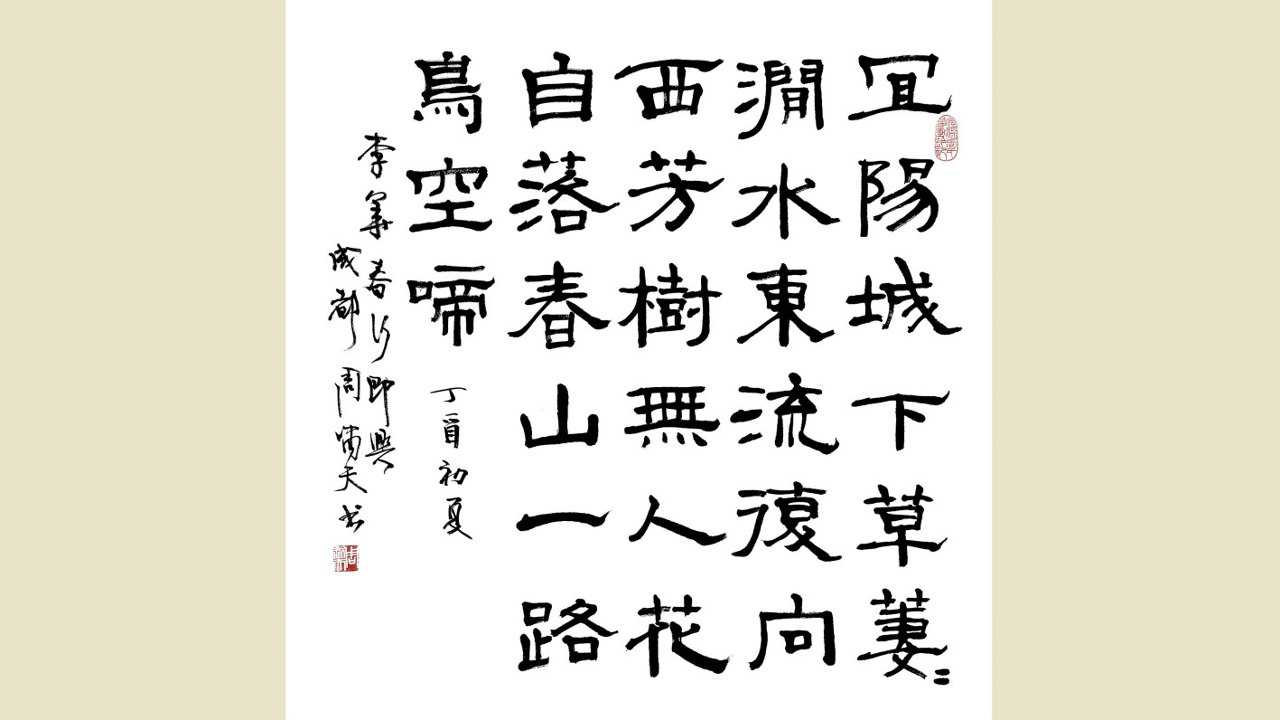 冝陽城下草萋〻
澗水東流復向
西芳樹無人花
自落春山一路
鳥空啼 丁酉初夏
李華春行即興
成都周嘯天书